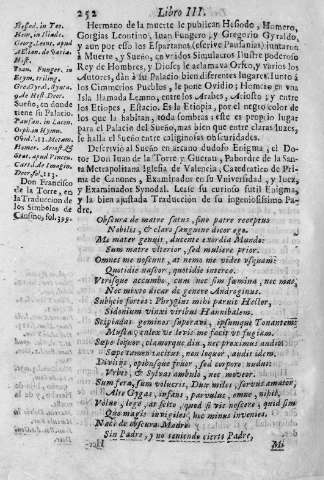 252
Libro III.
Hesiod. in Teo.
Hom. in Iliade.
Georg. Leont. apud
Ælian. de Varia
Hist.
Juan. Funger. in
Etym. triling.
Greg. Gyral. Syntag.
de Hist. Deor.
Sueño, en donde
tiene su Palacio.
Pausan. in Lacon.
Orph. in Hymn.
Ovid.
Don Francisco
de la Torre, en
la Traduccion de
los Simbolos de
Causino, fol. 395.
Hermano de la muerte le publican Hesiodo, Homero,
Gorgias Leontino, Juan Fungero, y Gregorio Gyraldo,
y aun por esso los Espartanos (escrive Pausanias) juntaron
à Muerte, y Sueño, en vnidos Simulacros Ilustre poderoso
Rey de Hombres, y Dioses le aclamava Orfeo, y varios los
Autores, dàn à su Palacio bien diferentes lugares. Junto à
los Cimmerios Pueblos, le pone Ovidio; Homero en vna
Isla llamada Lemno, entre los Arabes, Ariosto; y entre
los Etiopes, Estacio. Es la Etiopia, por el negro color de
los que la habitan, toda sombras; este es proprio lugar
para el Palacio del Sueño, mas bien que entre claras luzes,
le halla el Sueño entre caliginosas obscuridades.
Descrivió al Sueño en arcano dudoso Enigma, el Do-
tor Don Juan de la Torre y Guerau, Paborde de la San-
ta Metropolitana Iglesia de Valencia, Catedratico de Pri-
ma de Canones, Examinador en su Vniversidad, y Juez,
y Examinador Synodal. Lease su curioso sutil Enigma,
y la bien ajustada Traduccion de su ingeniosissimo Pa-
dre.
Obscura de matre satus, sine patre receptus
Nobilis, & claro sanguine dicor ego.
Me mater genuit, ducente exordia Mundo:
Sum mare vlterior, sed muliere prior.
Omnes me noscunt, at nemo me videt vsquam:
Quotidie nascor, quotidie intereo.
Virisque accumbo, cum nec sim fœmina, nec mas,
Nec minùs dicar de genere Androginus.
Subjicio fortes: Phrygius mihi paruit Hector,
Sidonium vinxi viribus Hannibalem.
geminos superavi, ipsumque Tonantem:
Musca, culex ve levis me facit vt fugiam.
Sæpe loquor, clamorque diu, nec proximus audit:
Sæpe tamen tacitus, non loquor, audit idem.
Divitijs, opibusque fruor, sed corpore nudus:
Vrbes, & sylvas ambulo, nec moveor.
Sum fera, sum volucris, Dux miles, servus amator,
Alter Gygas, infans, parvulus, omne, nihil.
Volve, lege, ac scito, quod si vis noscere, quid sim
Quo magis invigiles, hoc minus invenies.
Nacì de obscura Madre
Sin Padre, y no teniendo cierto Padre,
Mi